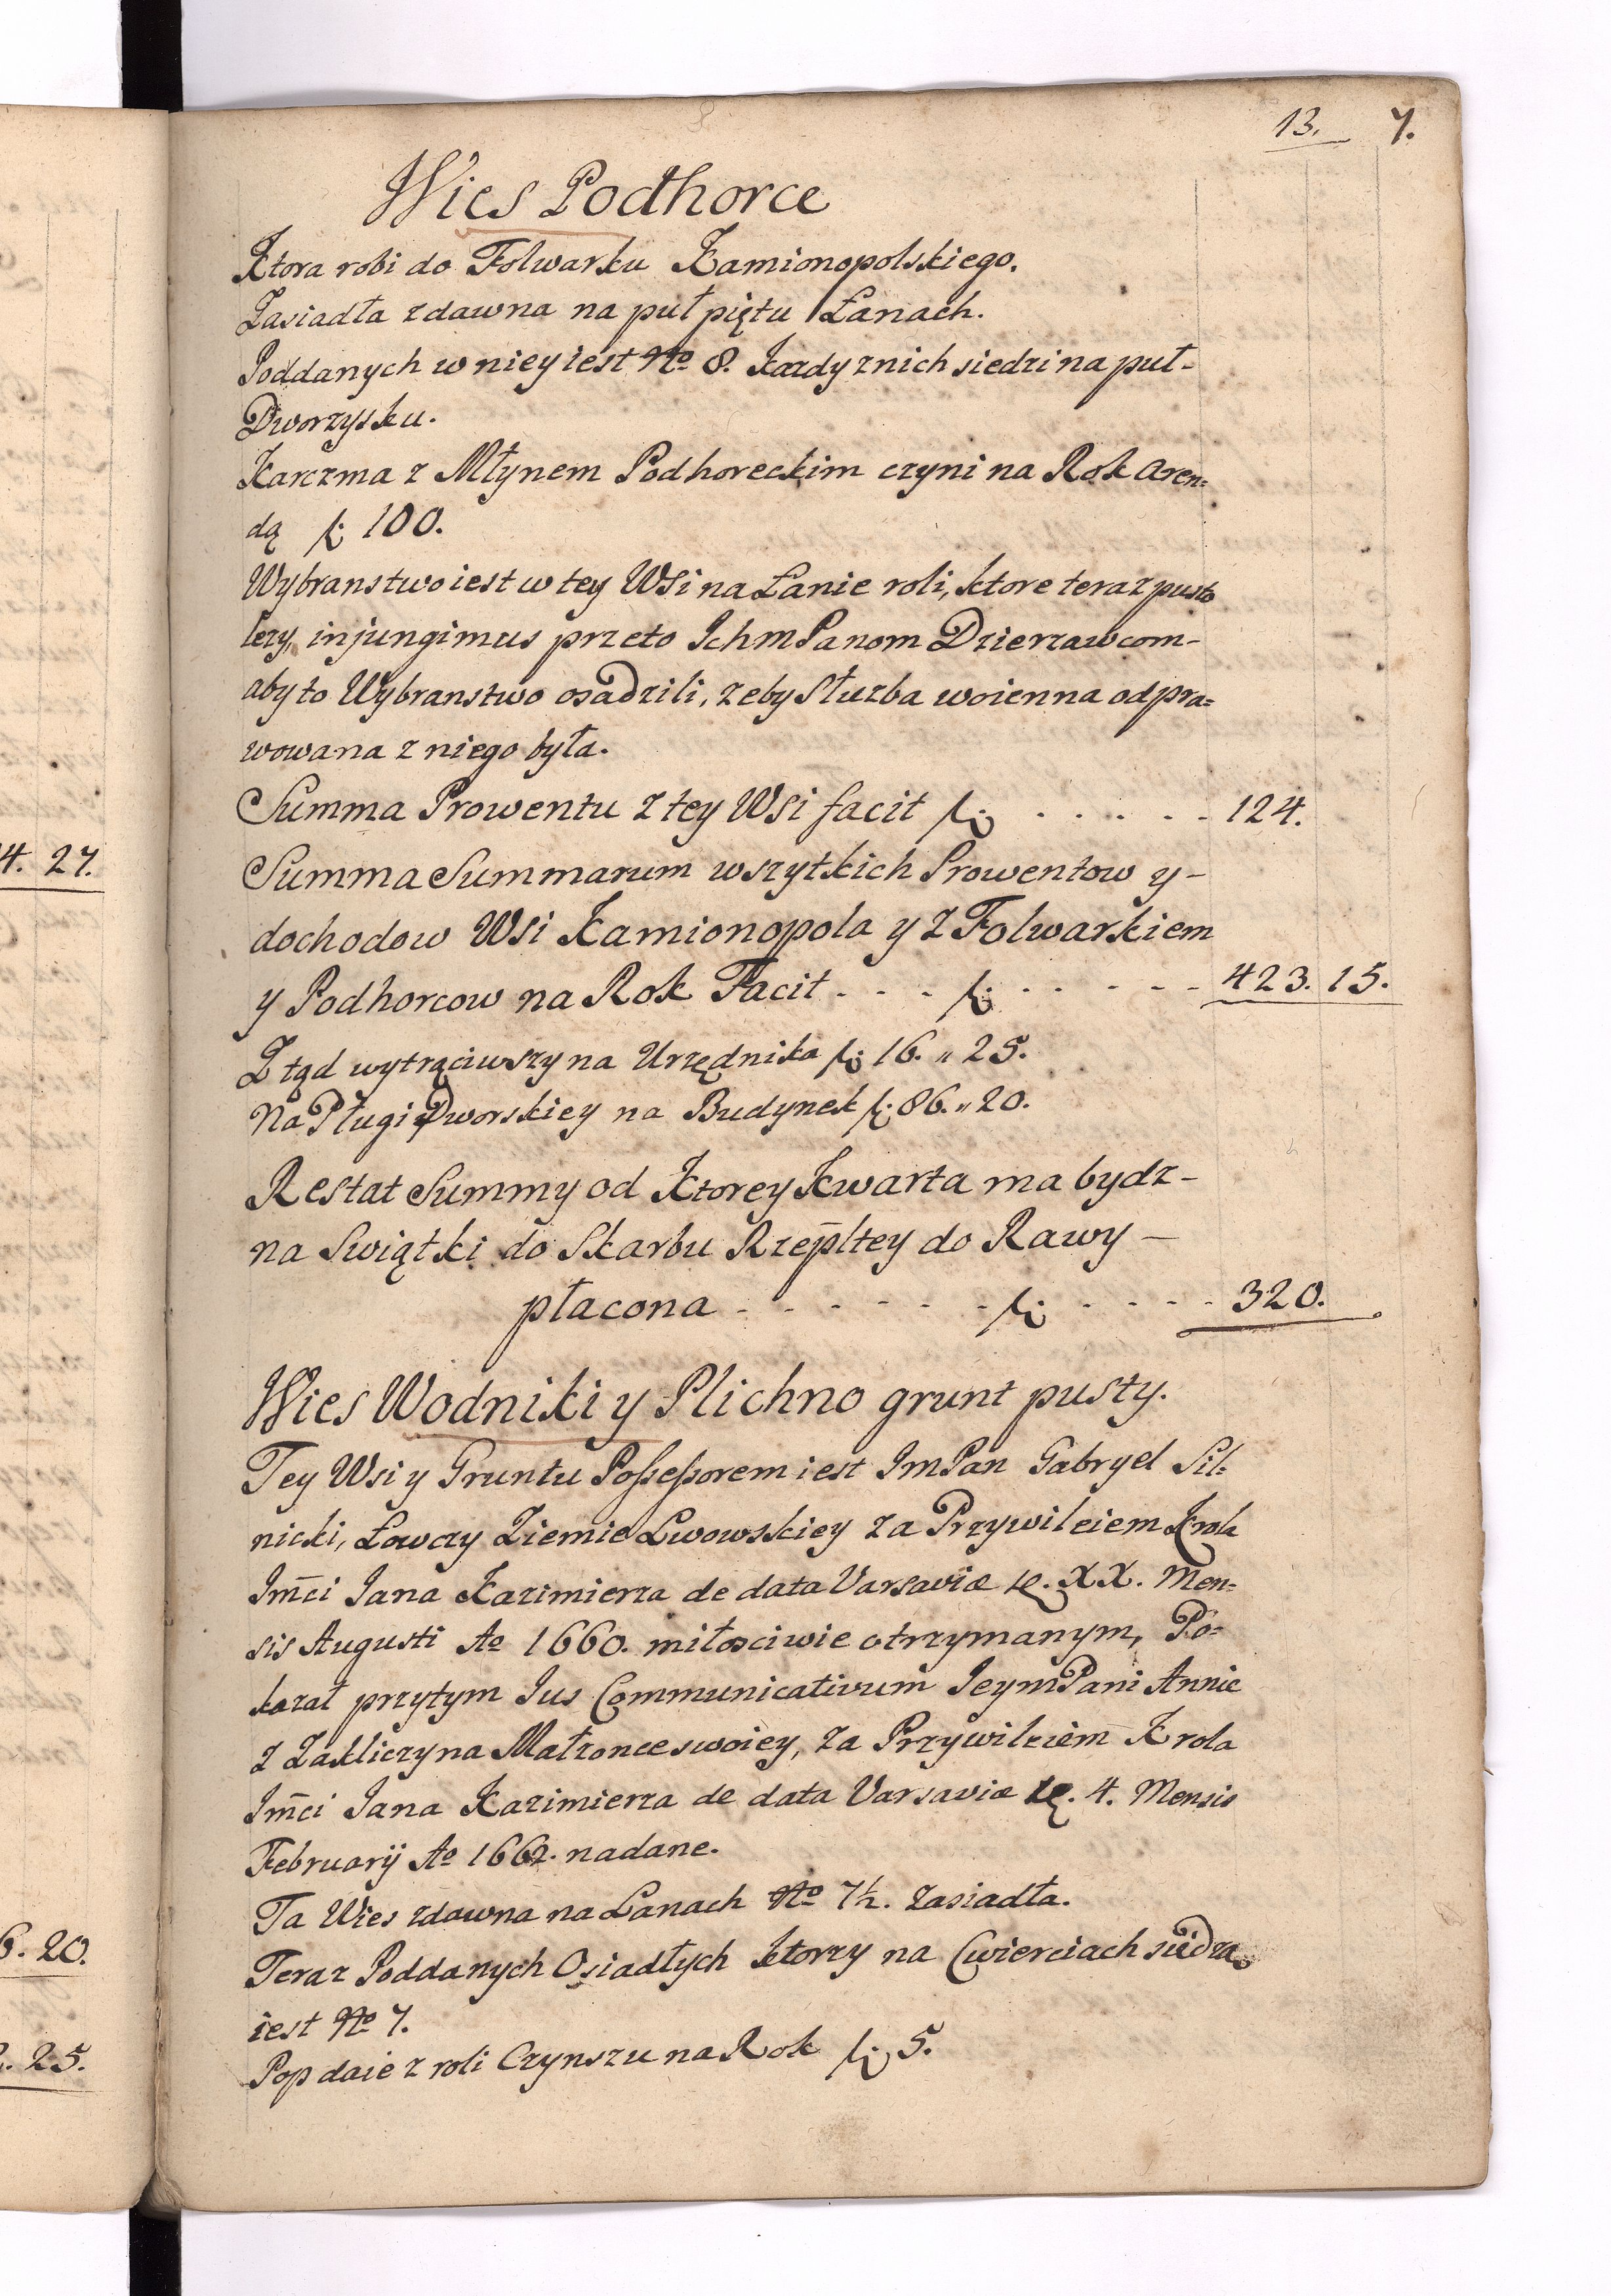 13. 7.
Wies Podhorce
Ktora robi do Folwarku Kamionopolskiego.
Zasiadła zdawna na puł piętu Łanach.
Poddanych w niey iest No 8. Kazdy znich siedzi na puł-
Dworzysku.
Karczma z Młynem Podhoreckim czyni na Rok Aren=
dą f: 100.
Wybranstwo iest w tey WSi na Łanie roli, ktore teraz pusto
lezy, injungimus przeto Ichm Panom Dzierzawcom-
aby to Wybranstwo osadzili, zeby Słuzba woienna odpra=
wowana z niego była.
Summa Prowentu z tey WSi facit f: . . . . . - 124.
Summa Summarum wszytkich Prowentow y-
dochodow WSi Kamionopola y z Folwarkiem
y Podhorcow na Rok Facit - - - f: - - - - - 423. 15.
Z tąd wytrąciwszy na Urzędnika f: 16. „ 25.
Na Pługi Dworskiey na Budynek f: 86. „ 20.
Restat Summy od Ktorey Kwarta ma bydz-
na Swiątki do Skarbu Rzepltey do Rawy -
płacona - - - - - - f: - - - - 320.
Wies Wodniki y Plichno grunt pusty.
Tey Wsi y Gruntu Poßeßorem iest ImPan Gabryel Sil=
nicki, Łowczy Ziemie Lwowskiey za Przywileiem Krola
Imci Jana Kazimierza de data Varsaviæ XX. Men=
sis Augusti Ao 1660. miłosciwie otrzymanym, Po=
kazał przytym Jus Communicativum Jeym Pani Annie
z Zakliczyna Małzonce swoiey, za Przywileiem Krola
Imci Jana Kazimierza de data Varsaviæ 4. Mensis
Februarij Ao 1662. nadane.
Ta Wies zdawna na Łanach No 7½. zasiadła.
Teraz Poddanych Osiadłych ktorzy na Cwierciach siedza
iest No 7.
Pop daie z roli Czynszu na Rok f: 5.
4. 27.
6. 20.
25.